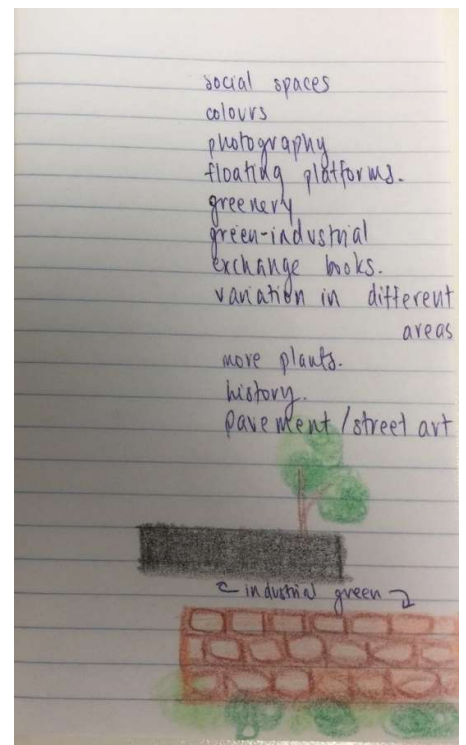 social spaces
colours
photography
floating platforms.
greenery
green-industrial
exchange books.
variation in different
areas
more plants.
history.
pavement/street art
industrial green